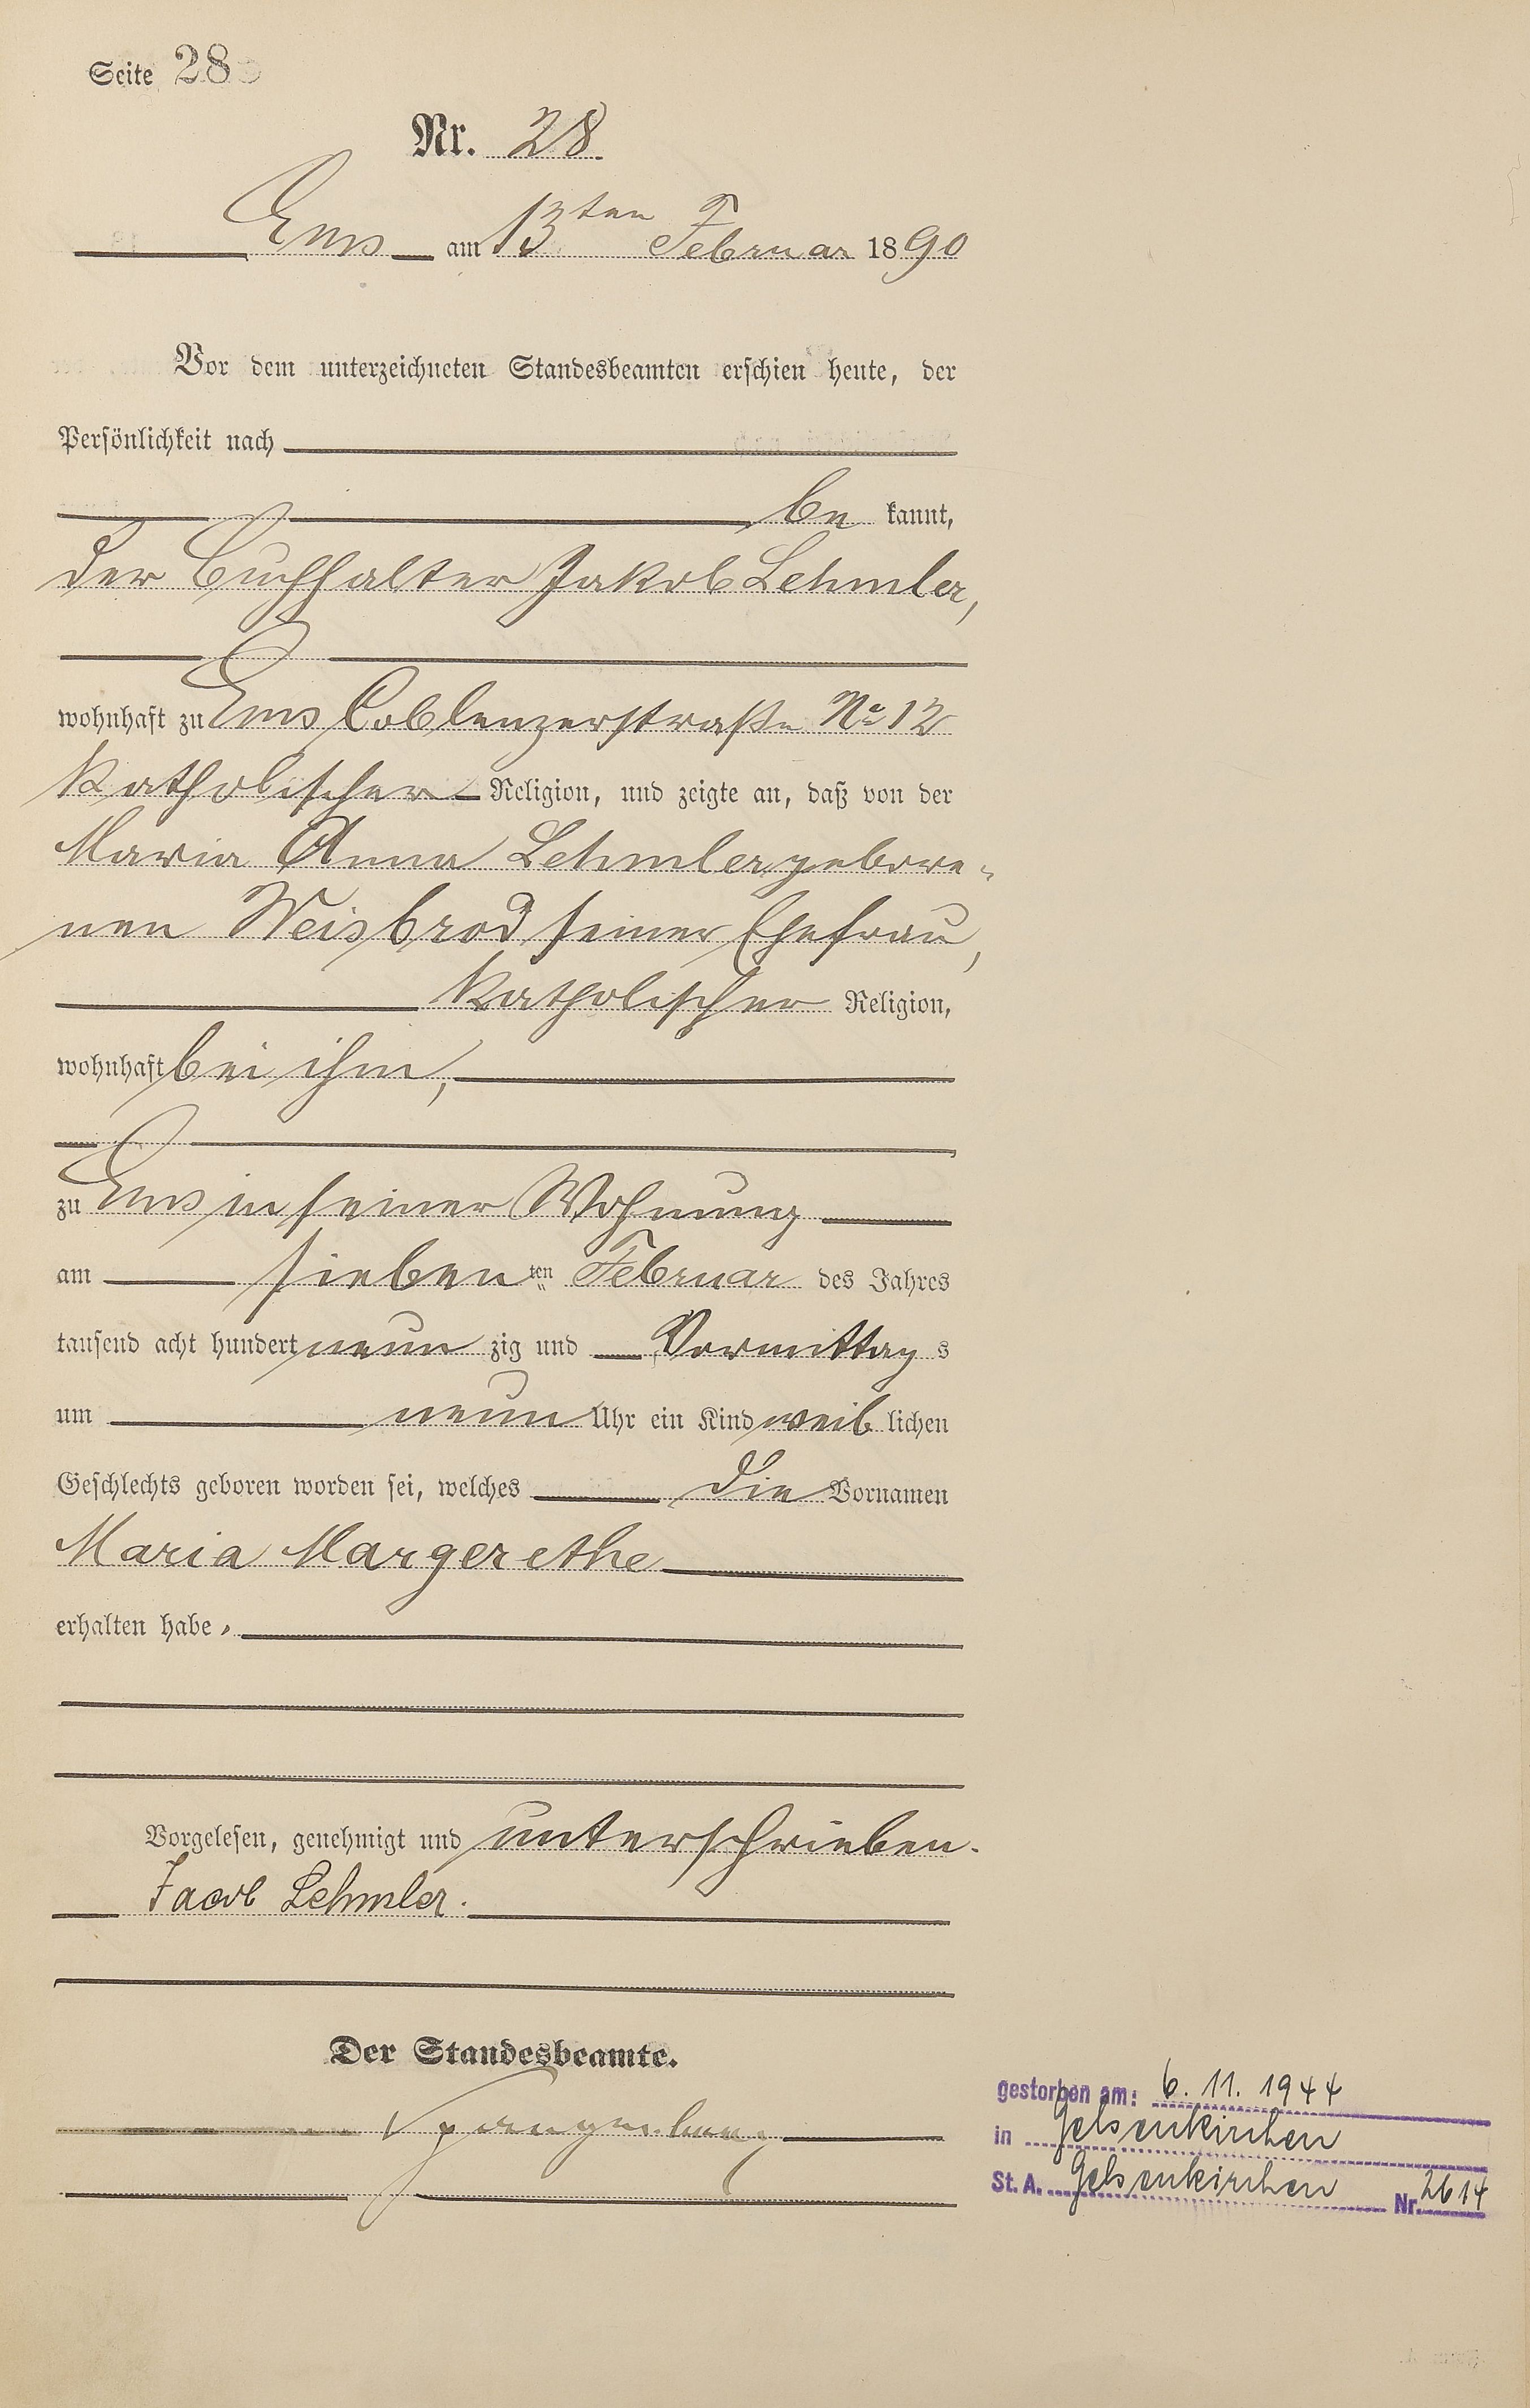 Seite 28
Nr. 28.
Ems am 13ten Februar 1890
Vor dem unterzeichneten Standesbeamten erschien heute, der
Persönlichkeit nach
be kannt,
der Buchhalter Jakob Lehmler,
wohnhaft zu Ems Coblenzerstraße No 12
katholischer Religion, und zeigte an, daß von der
Maria Anna Lehmler gebore-
nen Weisbrod seiner Ehefrau,
katholischer Religion,
wohnhaft bei ihm,
zu Ems in seiner Wohnung
am siebenten Februar des Jahres
tausend acht hundert neun zig und Vormittag s
um neun Uhr ein Kind weib lichen
Geschlechts geboren worden sei, welches die Vornamen
Maria Margerethe
erhalten habe,
Vorgelesen, genehmigt und unterschrieben.
Jacob Lehmler.
Der Standesbeamte.
gestorben am: 6. 11. 1944
in Gelsenkirchen
St. A. Gelsenkirchen Nr. 2614